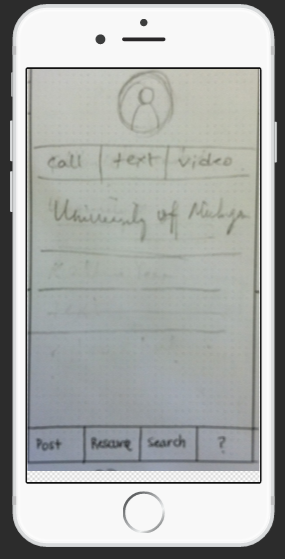 call text video
University of Michigan
Post Resource Search ?